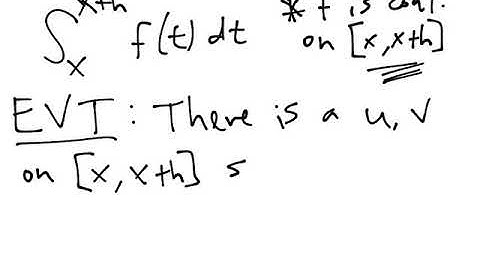 ∫ₓˣ⁺ʰ f(t) dt
* f is cont.
on [x,x+h]
EVT: There is a u, v
on [x, x+h] s